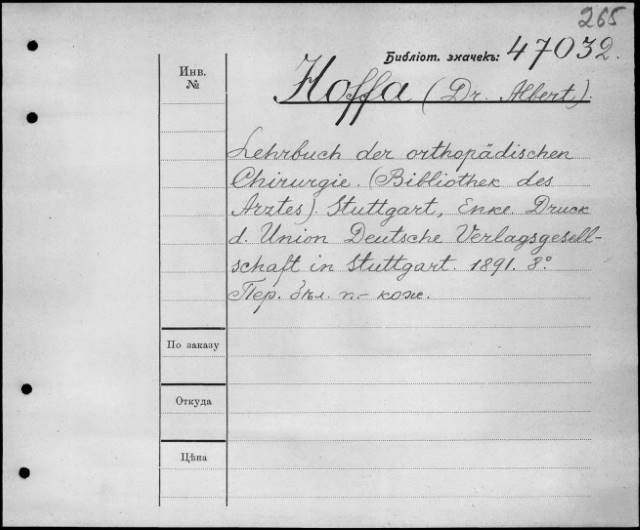 265
Библіот. значекъ: 47032.
Инв. №
Hoffa (Dr. Albert).
Lehrbuch der orthopädischen
Chirurgie. (Bibliothek des
Arztes). Stuttgart, Enke. Druck
d. Union Deutsche Verlagsgesell-
schaft in Stuttgart. 1891. 8°
Пер. бѣл. п.- кож.
По заказу
Откуда
Цѣна